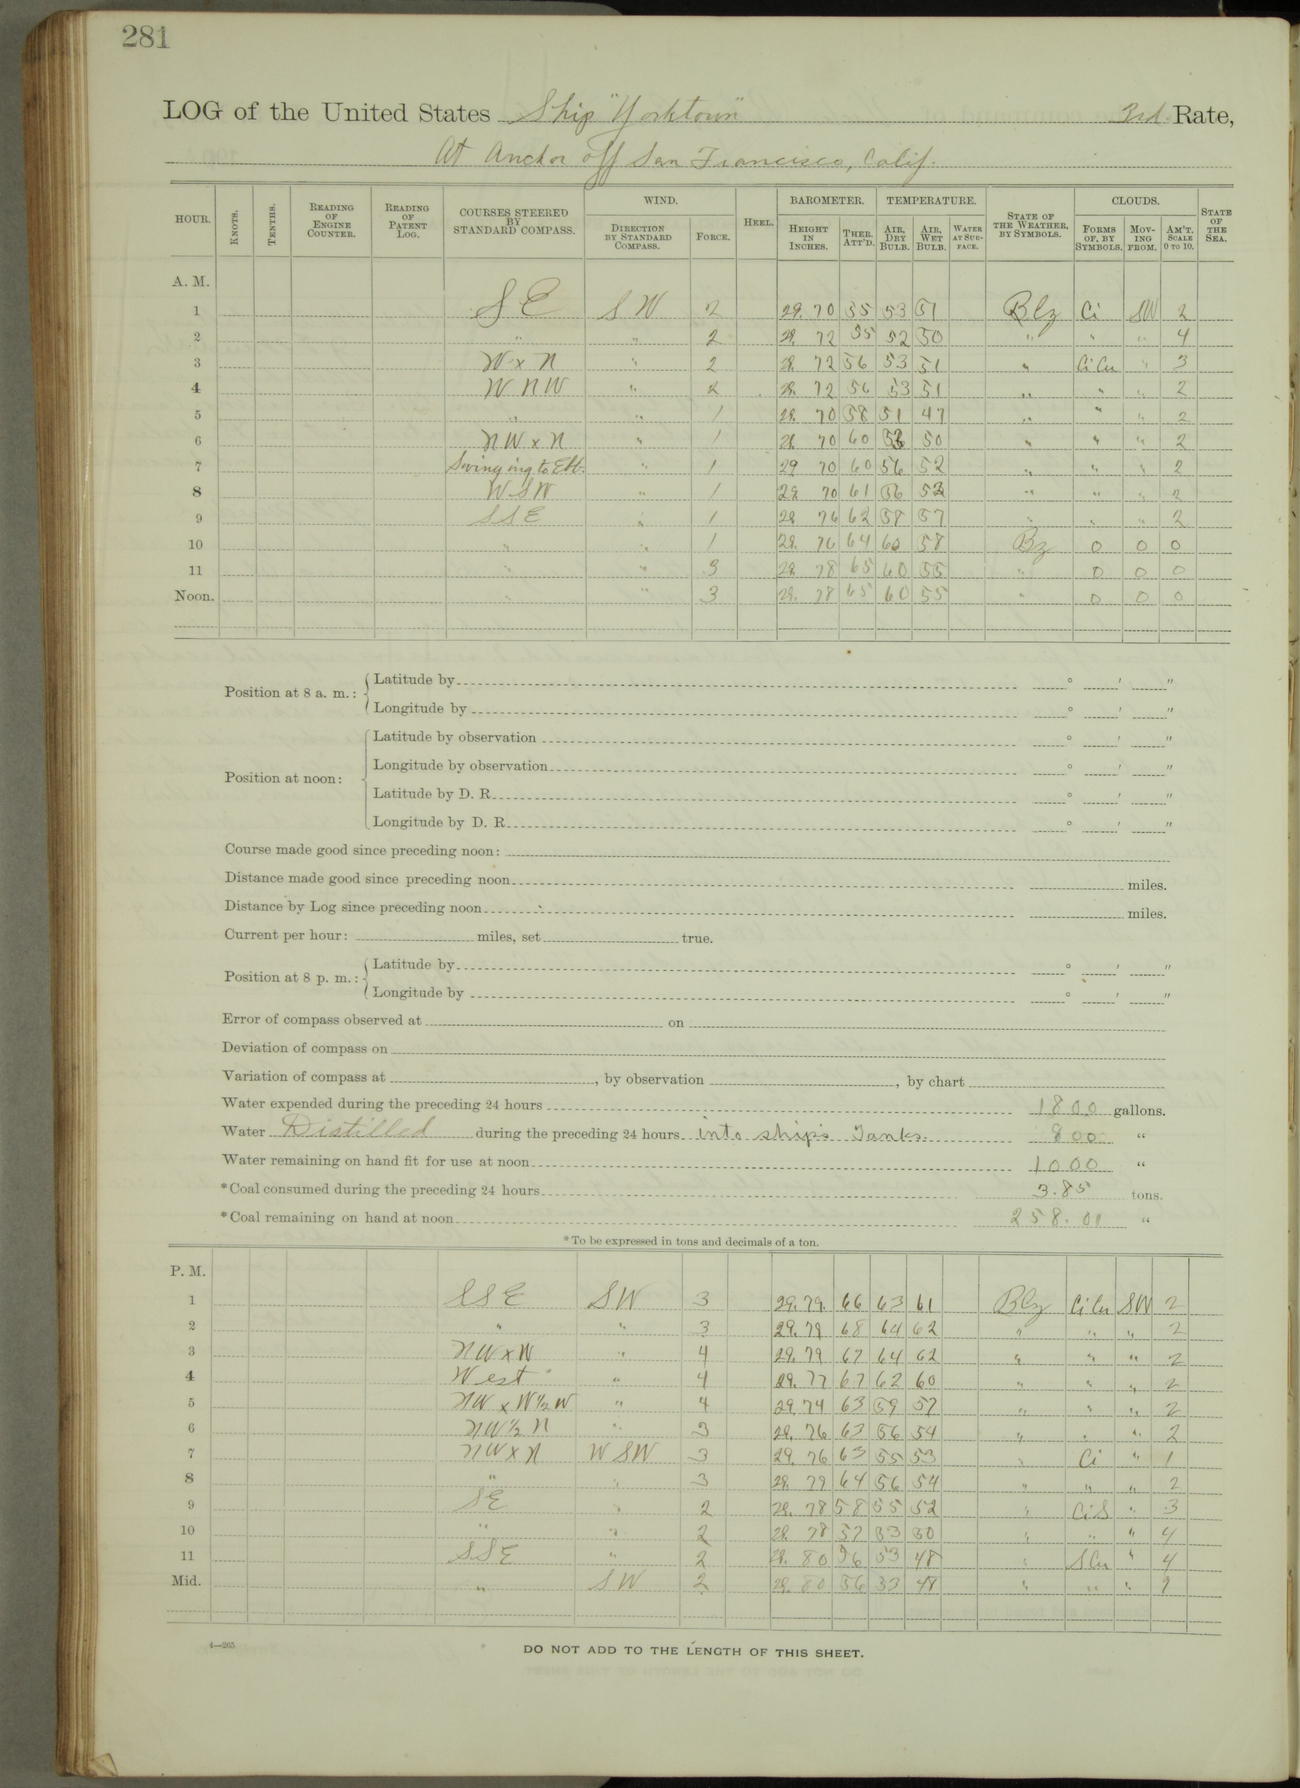 281
LOG of the United States Ship "Yorktown" 3rd Rate,
At Anchor off San Francisco, Calif.
HOUR. KNOTS. TENTHS. READING OF ENGINE COUNTER. READING OF PATENT LOG. COURSES STEERED BY STANDARD COMPASS. WIND. DIRECTION BY STANDARD COMPASS. FORCE. HEEL. BAROMETER. HEIGHT IN INCHES. THER. ATT'D. TEMPERATURE. AIR, DRY BULB. AIR, WET BULB. WATER AT SURFACE. STATE OF THE WEATHER, BY SYMBOLS. CLOUDS. FORMS OF, BY SYMBOLS. MOVING FROM. AM'T. SCALE 0 TO 10. STATE OF THE SEA.
A. M.
1 SE SW 2 29.70 55 53 51 Bcz Ci SW 2
2 " " 2 29 72 55 52 50 " " " 4
3 W x N " 2 29 72 56 53 51 " CiCu " 3
4 WNW " 2 29 72 56 53 51 " " " 2
5 " " 1 29 70 58 51 47 " " " 2
6 NW x N " 1 29 70 60 50 " " " 2
7 Swinging to Ebb. " 1 29 70 60 56 52 " " " 2
8 WSW " 1 29 70 61 56 52 " " " 2
9 SSE " 1 29 76 62 58 57 " " " 2
10 " " 1 29. 76 64 60 58 Bz 0 0 0
11 " " 3 29 78 65 60 55 " 0 0 0
Noon. " " 3 29. 78 65 60 55 " 0 0 0
Position at 8 a. m.: Latitude by ° ' "
Longitude by ° ' "
Position at noon: Latitude by observation ° ' "
Longitude by observation ° ' "
Latitude by D. R. ° ' "
Longitude by D. R. ° ' "
Course made good since preceding noon:
Distance made good since preceding noon miles.
Distance by Log since preceding noon miles.
Current per hour: miles, set true.
Position at 8 p. m.: Latitude by ° ' "
Longitude by ° ' "
Error of compass observed at on
Deviation of compass on
Variation of compass at , by observation , by chart
Water expended during the preceding 24 hours 1800 gallons.
Water Distilled during the preceding 24 hours into ship's Tanks 800 "
Water remaining on hand fit for use at noon 1000 "
*Coal consumed during the preceding 24 hours 3.85 tons.
*Coal remaining on hand at noon 258.01 "
*To be expressed in tons and decimals of a ton.
P. M.
1 SSE SW 3 29.79. 66 63 61 Bcz CiCu SW 2
2 " " 3 29.79 68 64 62 " " " 2
3 NW x W " 4 29.79 67 64 62 " " " 2
4 West " 4 29.77 67 62 60 " " " 2
5 NW x W½W " 4 29.74 63 59 57 " " " 2
6 NW½N " 3 29.76 63 56 54 " " " 2
7 NW x N WSW 3 29.76 63 55 53 " Ci " 1
8 " " 3 29. 79 64 56 54 " " " 2
9 SE " 2 29. 78 58 55 52 " CiS " 3
10 " " 2 29. 78 57 53 50 " " " 4
11 SSE " 2 29. 80 56 53 48 " SCu " 4
Mid. " SW 2 29. 80 56 53 48 " " "
4—265
DO NOT ADD TO THE LENGTH OF THIS SHEET.